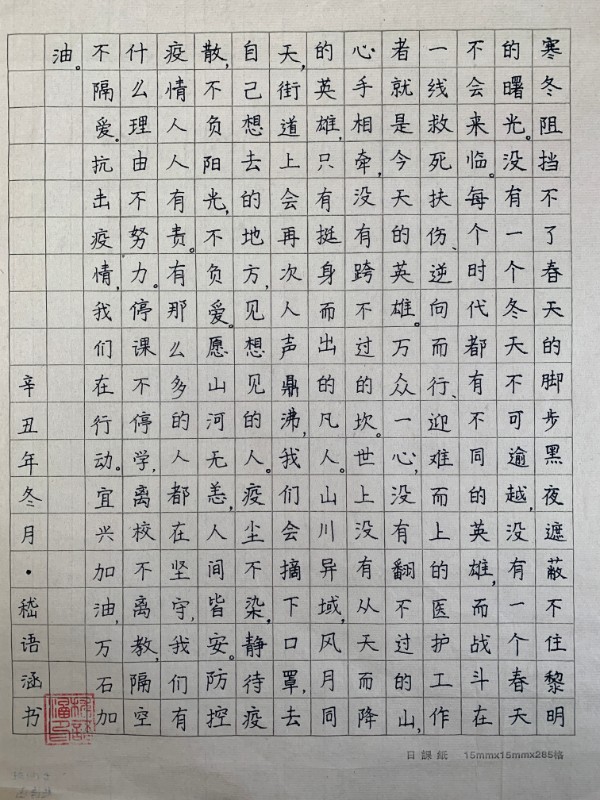 寒冬阻挡不了春天的脚步黑夜遮蔽不住黎明
的曙光。没有一个冬天不可逾越,没有一个春天
不会来临。每个时代都有不同的英雄,而战斗在
一线救死扶伤、逆向而行、迎难而上的医护工作
者就是今天的英雄。万众一心,没有翻不过的山,
心手相牵,没有跨不过的坎。世上没有从天而降
的英雄,只有挺身而出的凡人。山川异域,风月同
天,街道上会再次人声鼎沸,我们会摘下口罩,去
自己想去的地方,见想见的人。疫尘不染,静待疫
散,不负阳光,不负爱。愿山河无恙,人间皆安。防控
疫情人人有责。有那么多的人都在坚守,我们有
什么理由不努力。停课不停学,离校不离教,隔空
不隔爱。抗击疫情,我们在行动。宜兴加油,万石加
油。
辛丑年冬月·嵇语涵书
日課紙 15mmx15mmx285格